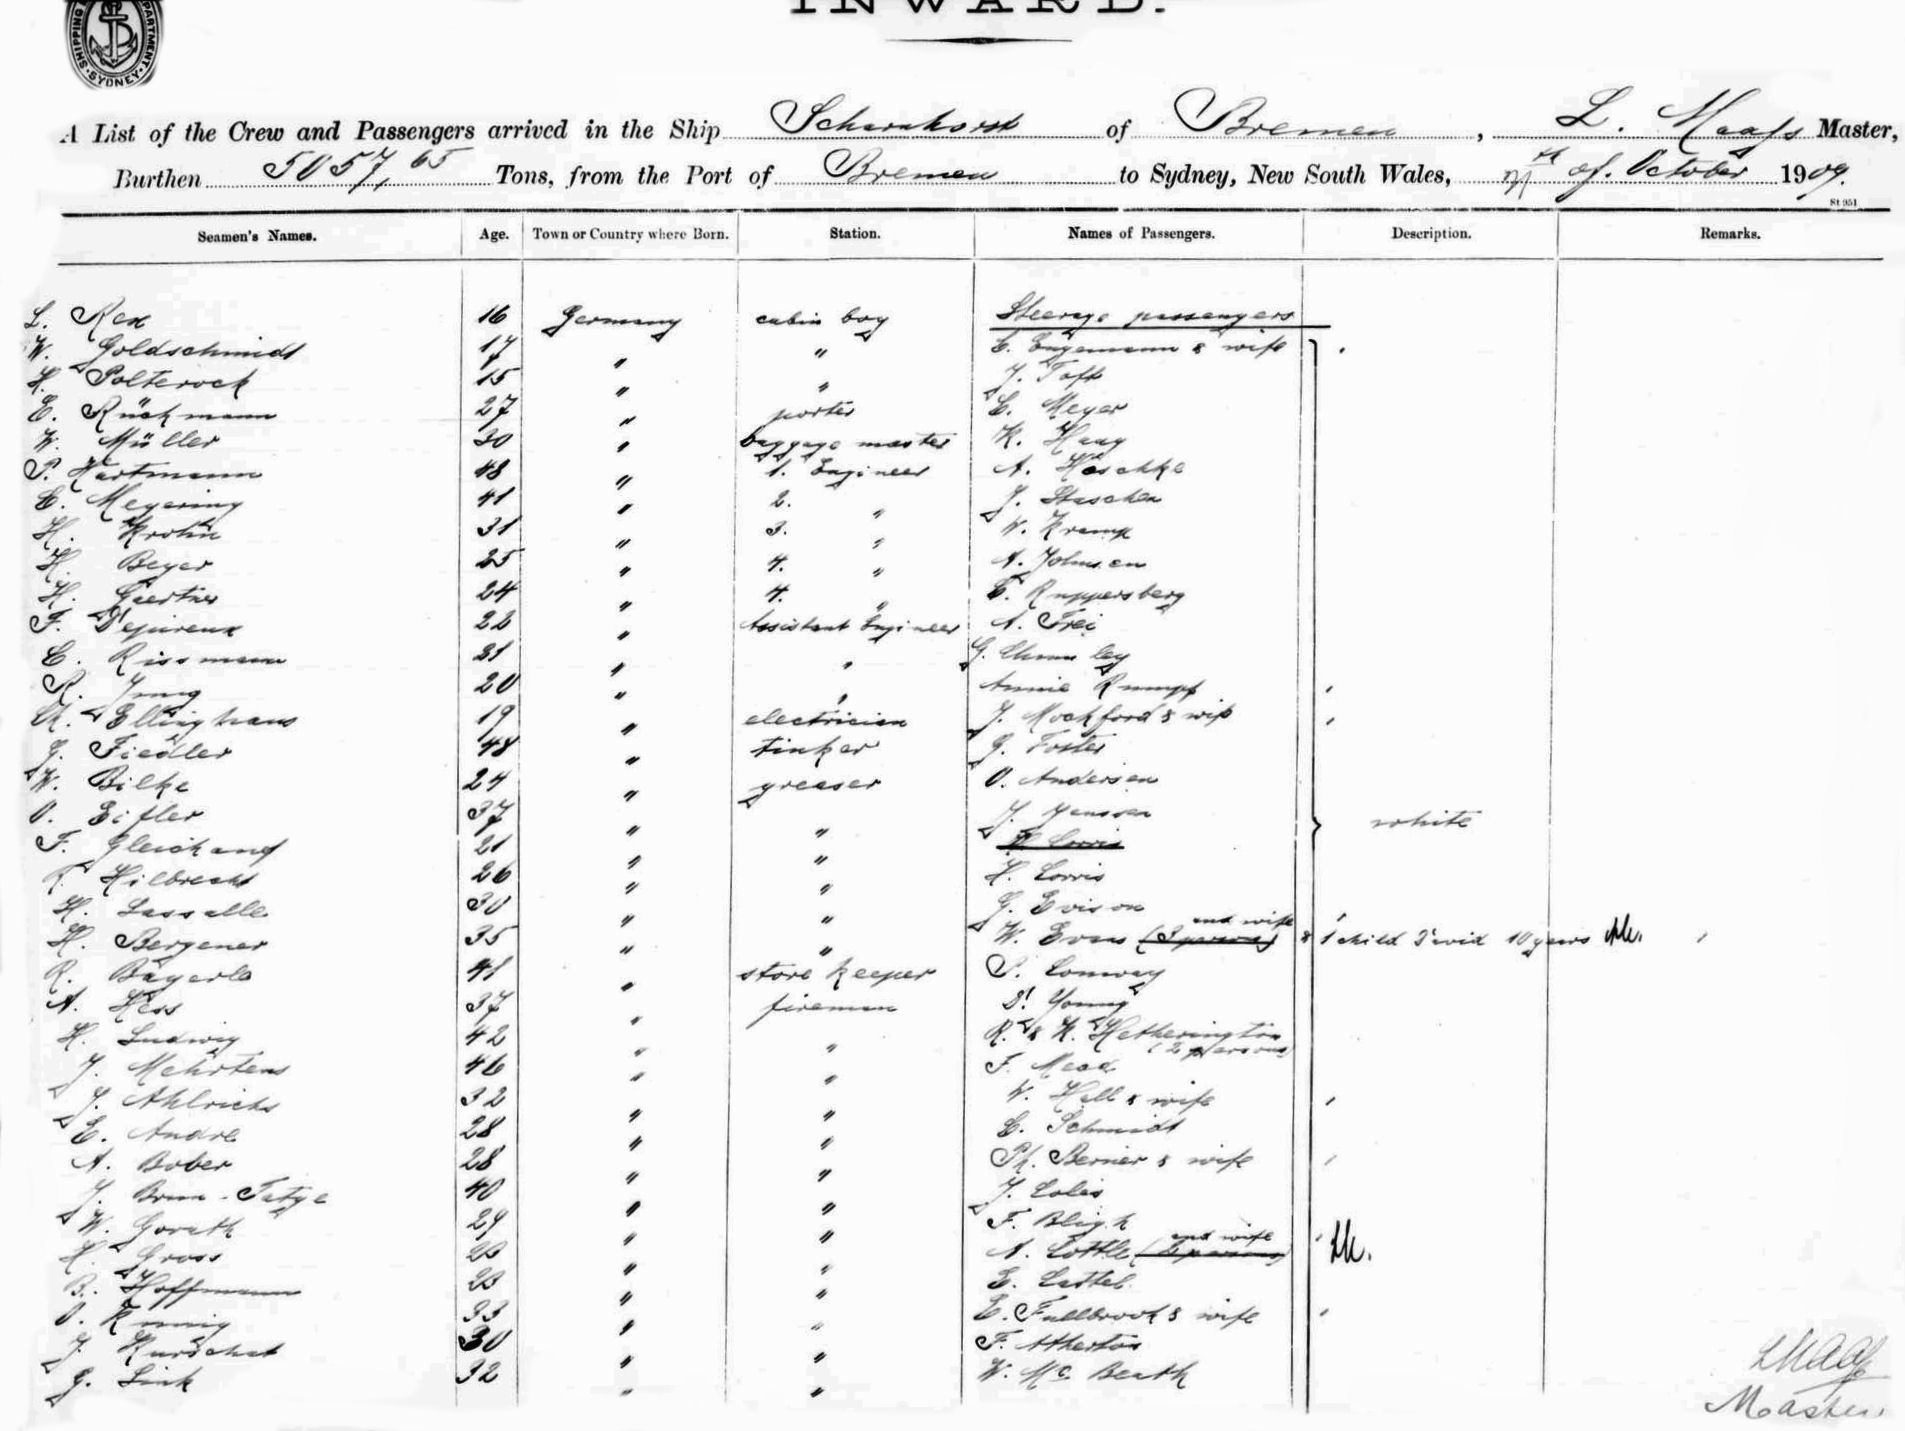 INWARD.
SHIPPING DEPARTMENT SYDNEY
A List of the Crew and Passengers arrived in the Ship Scharnhorst of Bremen, L. Maass Master,
Burthen 5057,65 Tons, from the Port of Bremen to Sydney, New South Wales, of October 1909.
St 951
Seamen's Names. Age. Town or Country where Born. Station. Names of Passengers. Description. Remarks.
L. Rex 16 Germany cabin boy Steerage passengers
W. Goldschmidt 17 " " C. Engemann & wife
H. Polterock 15 " " J. Toft
E. Rückmann 27 " porter C. Meyer
W. Müller 30 " baggage master K. Haag
P. Hartmann 48 " 1. Engineer A. Haschke
C. Meyering 41 " 2. " J. Staschen
H. Krohn 31 " 3. " W. Kramp
H. Beyer 25 " 4. " A. Johnsen
H. Gaertner 24 " 4. " E. Ruppersberg
F. Depireux 22 " Assistant Engineer A. Frei
C. Rissmann 21 " " G.
R. Jung 20 " " Annie Rumpf
Ch. Ellinghaus 19 " electrician J. Mockford & wife
G. Fiedler 48 " tinker G. Foster
W. Bilke 24 " greaser O. Andersen
O. Eifler 37 " " J. Janssen white
F. Gleichauf 21 " " W. Lorris
F. Hilbrecht 26 " " H. Lorris
H. Lassalle 30 " " G. Evison
H. Bergener 35 " " W. Evans (3 persons) and wife & 1 child David 10 years
R. Bayerle 41 " store keeper P. Conway
A. Hess 37 " fireman D. Young
H. Ludwig 42 " " R. & K. Hetherington (2 persons)
J. Mehrtens 46 " " F. Mead
J. Ahlrichs 32 " " W. Hall & wife
E. Andre 28 " " C. Schmidt
A. Bober 28 " " Ph. Berner & wife
J. Brun-Tatje 40 " " J. Coles
W. Gorath 29 " " F. Bligh
H. Gross 23 " " A. Cottle (2 persons) and wife
B. Hoffmann 23 " " E. Cattel
O. König 33 " " E. Fullbrook & wife
J. Kurschat 30 " " F. Atherton
G. Link 32 " " W. Mc Beath
LMaass
Master